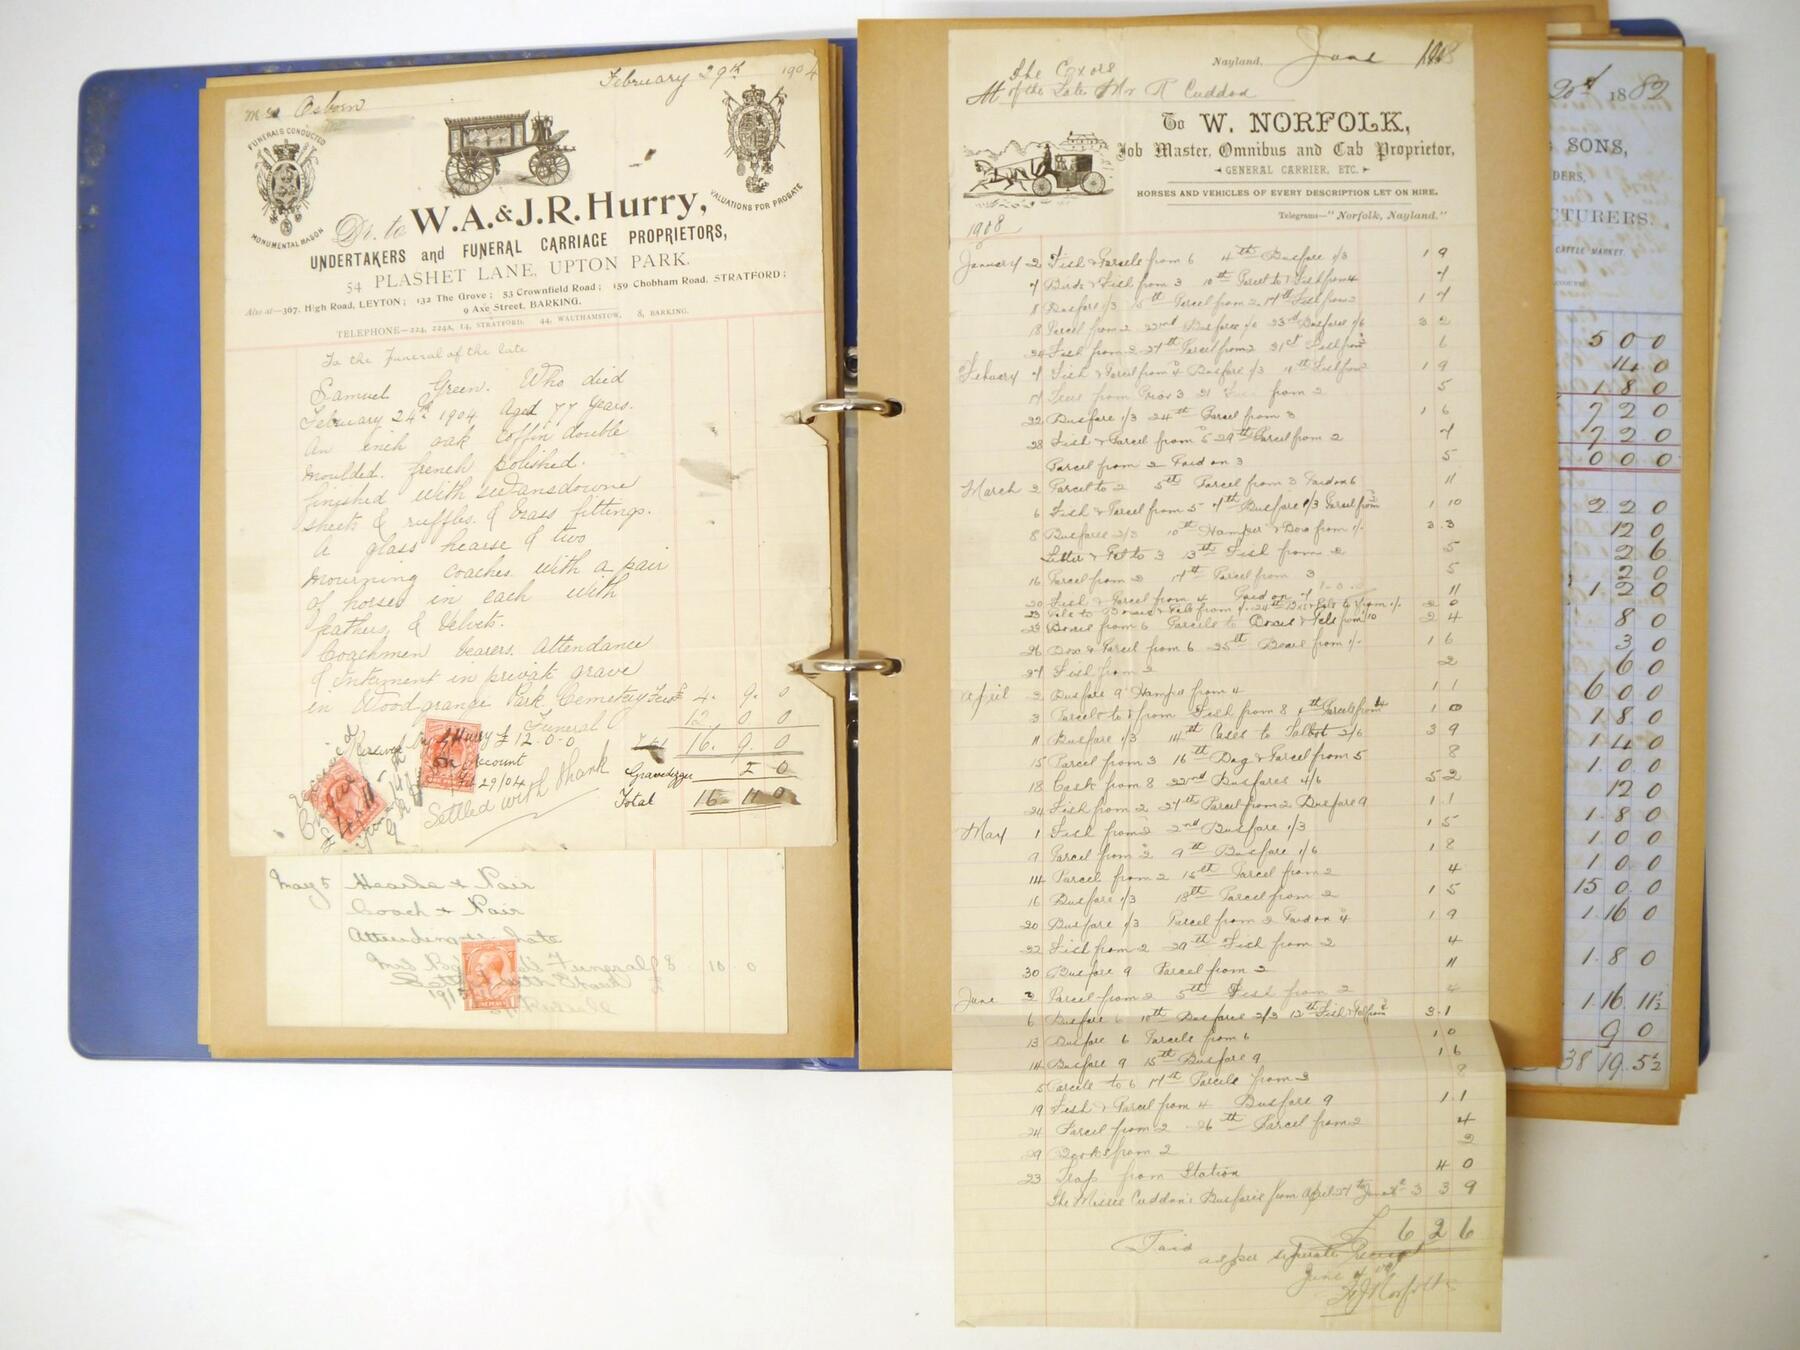 February 29th 1904
Mrs Osborn
FUNERALS CONDUCTED
MONUMENTAL MASON
VALUATIONS FOR PROBATE
Dr. to W.A. & J.R. Hurry,
UNDERTAKERS and FUNERAL CARRIAGE PROPRIETORS,
54 PLASHET LANE, UPTON PARK.
Also at—367, High Road, LEYTON; 132 The Grove; 53 Crownfield Road; 159 Chobham Road, STRATFORD;
9 Axe Street, BARKING.
TELEPHONE—224, 224A, 14, STRATFORD. 44, WALTHAMSTOW, 8, BARKING.
To the Funeral of the late
Samuel Green. Who died
February 24th 1904 Aged 77 Years.
An inch oak coffin double
moulded. french polished.
finished with swansdowne
sheet & ruffles. & brass fittings.
A glass hearse & two
mourning coaches. with a pair
of horses in each with
feathers & Velvets.
Coachmen bearers. Attendance
& Interment in private grave
in Woodgrange Park Cemetery 4. 9. 0
Funeral 12 0 0
Received by J Hurry £12-0-0 16. 9. 0
on account
Feb 29/04
Gravedigger 2 0
Settled with thank
Total 16 11 0
May 5 Hearse & Pair
Coach & Pair
Attending late
Mrs Funeral £ 8 10 0
with thank
Nayland, June 1908
The Exors
M of the Late Mr R Cuddon
To W. NORFOLK,
Job Master, Omnibus and Cab Proprietor,
GENERAL CARRIER, ETC.
HORSES AND VEHICLES OF EVERY DESCRIPTION LET ON HIRE.
Telegrams—"Norfolk, Nayland."
1908
January 2 Fish & Parcels from 6 4th Busfare 1/3 1 9
7 Birds & Fish from 3 10th Parcel to & Fish from 4 7
8 Busfare 1/3 15th Parcel from 2 17th Fish from 2 1 7
18 Parcel from 2 22nd Busfares 1/6 23rd Busfare 1/6 3 2
24 Fish from 2 27th Parcel from 2 31st Fish from 2 6
February 7 Fish & Parcel from 4 Busfare 1/3 11th Fish from 2 1 9
17 from 3 21 from 2 5
22 Busfare 1/3 24th Parcel from 3 1 6
28 Fish & Parcel from 5 29th Parcel from 2 7
Parcel from 2 Paid on 3 5
March 2 Parcel to 2 5th Parcel from 3 Paid on 6 11
6 Fish & Parcel from 5 7th Busfare 1/3 Parcel from 2 1 10
8 Busfares 2/3 10th Hamper & Box from 1/- 3.3
Letter & to 3 13th Fish from 2 5
16 Parcel from 2 17th Parcel from 3 5
20 Fish & Parcel from 4 Paid on 7 11
23 24th 2 0
23 Boxes from 6 Parcels to Boxes & from 10 2 4
26 Box & Parcel from 6 25th Boxes from 1/- 1 6
27 Fish from 2 2
April 2 Busfare 9 Hamper from 4 1 1
3 Parcel to & from Fish from 8 Parcel from 4 1 0
11 Busfare 1/3 14th Cases to Talbot 2/6 3 9
15 Parcel from 3 16th Bag & Parcel from 5 8
18 Cask from 8 22nd Busfares 4/6 5 2
24 Fish from 2 27th Parcel from 2 Busfare 9 1.1
May 1 Fish from 2 2nd Busfare 1/3 1 5
9 Parcel from 2 9th Busfare 1/6 1 8
14 Parcel from 2 15th Parcel from 2 4
16 Busfare 1/3 18th Parcel from 2 1 5
20 Busfare 1/3 Parcel from 2 Paid on 4 1 9
22 Fish from 2 29th Fish from 2 4
30 Busfare 9 Parcel from 2 11
June 2 Parcel from 2 5th Fish from 2 4
6 Busfare 6 10th Busfares 2/3 12th Fish 3.1
13 Busfare 6 Parcels from 6 1 0
14 Busfare 9 15th Busfare 9 1 6
5 Parcels to 6 17th Parcels from 2 8
19 Fish & Parcel from 4 Busfare 9 1.1
24 Parcel from 2 26th Parcel from 2 4
29 Books from 2 2
23 Trap from Station 4 0
The Misses Cuddon's Busfares from April 27th to June 3 3 9
£ 6 2 6
Paid
as per separate Receipt
June
Norfolk
20th 1882
SONS,
DERS,
CTURERS.
CATTLE MARKET.
5 0 0
14 0
1 8 0
7 2 0
7 2 0
0 0 0
2 2 0
12 0
2 6
2 0
1 2 0
8 0
3 0
6 0
6 0 0
1 8 0
1 4 0
1 0 0
12 0
1 8 0
1 0 0
1 0 0
15 0 0
1 16 0
1 8 0
1 16 11½
9 0
38 19 5½